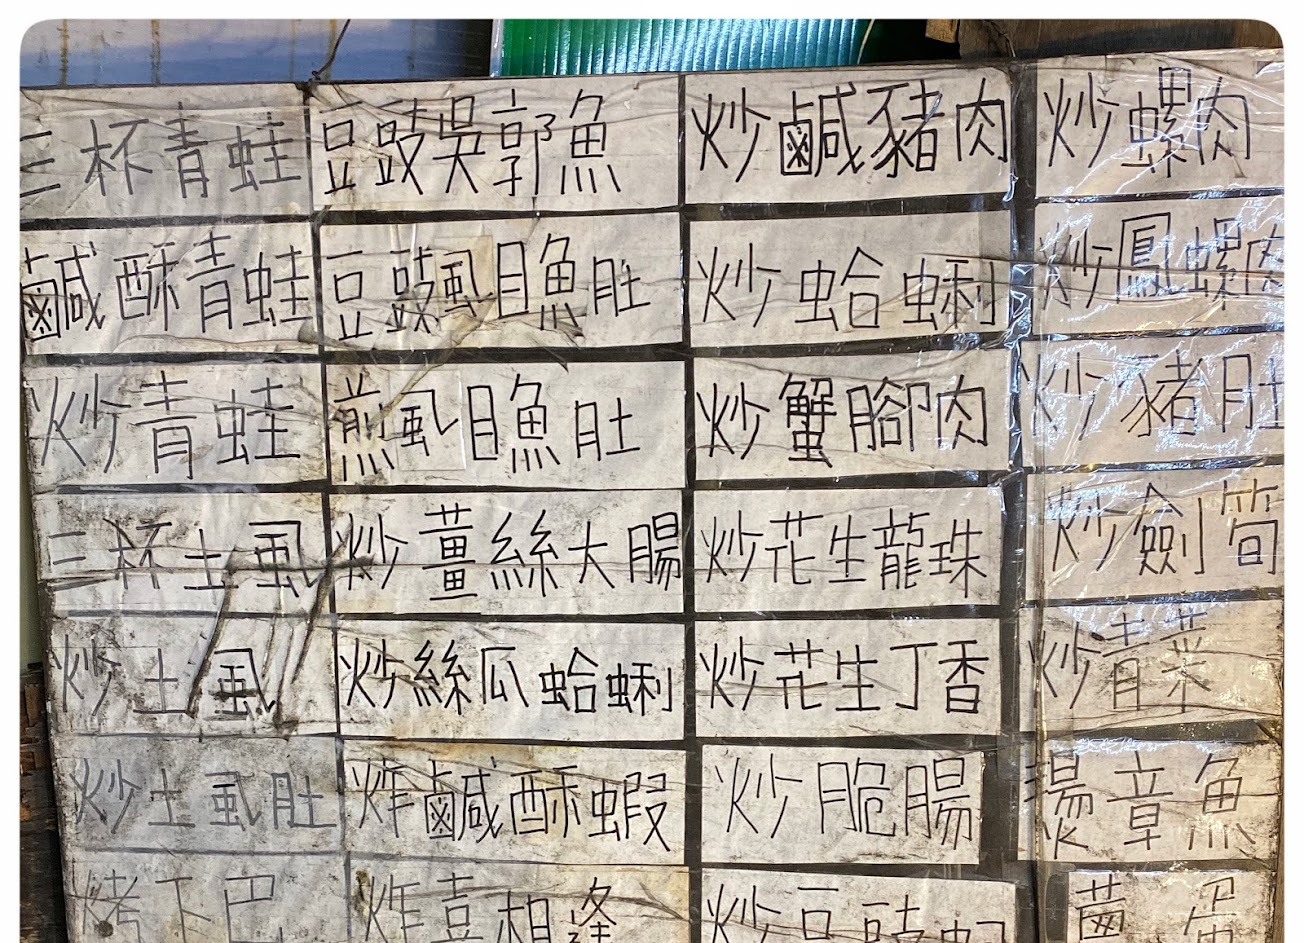 三杯青蛙
豆豉吳郭魚
炒鹹豬肉
炒螺肉
鹹酥青蛙
豆豉虱目魚肚
炒蛤蜊
炒鳳螺肉
炒青蛙
煎虱目魚肚
炒蟹腳肉
炒豬肚
三杯土虱
炒薑絲大腸
炒花生龍珠
炒劍筍
炒土虱
炒絲瓜蛤蜊
炒花生丁香
炒青菜
炒土虱肚
炸鹹酥蝦
炒脆腸
燙章魚
烤下巴
炸喜相逢
炒豆豉